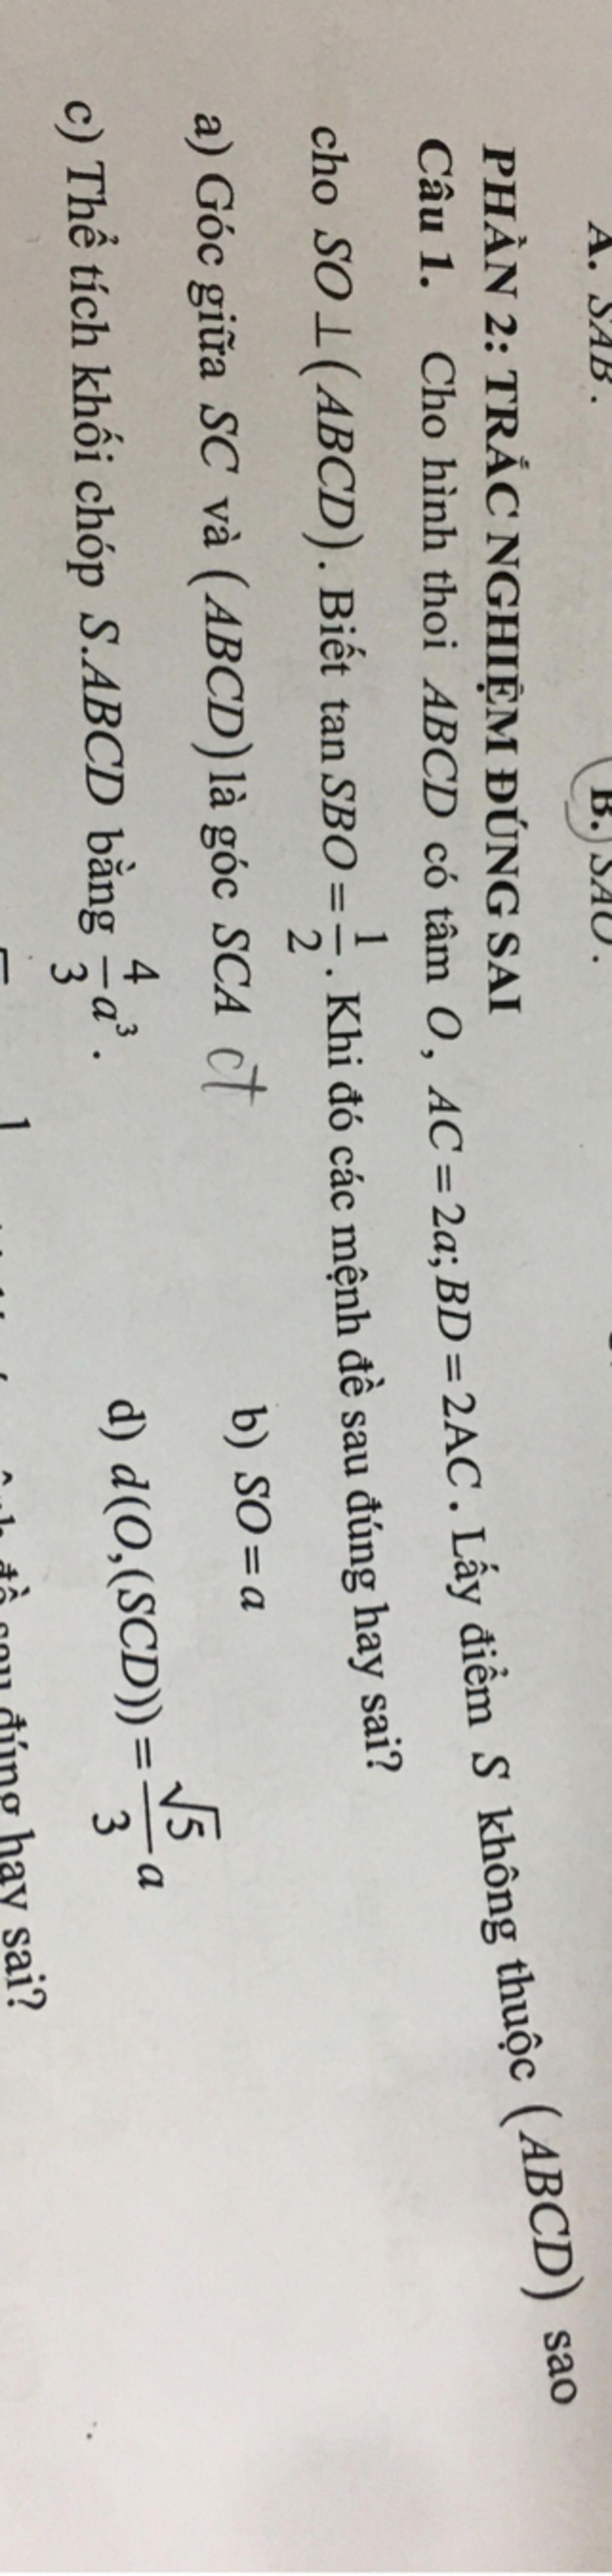 A. SAB.
B. SAO.
PHẦN 2: TRẮC NGHIỆM ĐÚNG SAI
Câu 1. Cho hình thoi ABCD có tâm O, AC = 2a; BD = 2AC. Lấy điểm S không thuộc (ABCD) sao
cho SO ⊥ (ABCD). Biết tan SBO = 1/2. Khi đó các mệnh đề sau đúng hay sai?
a) Góc giữa SC và (ABCD) là góc SCA
b) SO = a
c) Thể tích khối chóp S.ABCD bằng 4/3 a³.
d) d(O,(SCD)) = √5/3 a
sau đúng hay sai?